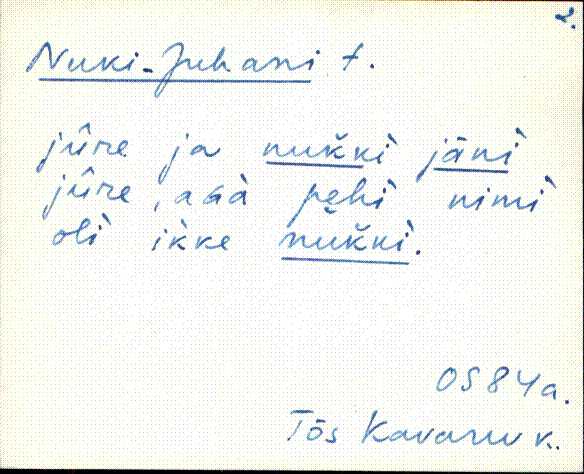 2.
Nuki-Juhani t.
jûre ja nuǩki jāni
jûre, aGà pęhi nimi
oli ikke nuǩki.
OS 84a.
Tõs Kavaru k.